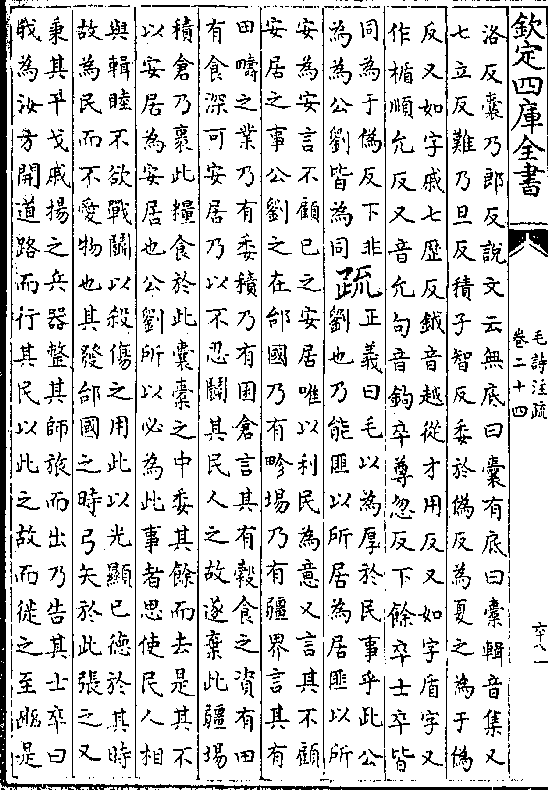 欽定四庫全書
毛詩注疏
卷二十四
洛反囊乃郎反說文云無底曰囊有底曰橐輯音集又
七立反難乃旦反積子智反委於偽反為夏之為于偽
反又如字戚七歷反鉞音越從才用反又如字盾字又
作楯順允反又音允句音鉤卒尊忽反下餘卒士卒皆
同為于偽反下非
為為公劉皆為同疏正義曰毛以為厚於民事乎此公
劉也乃能匪以所居為居匪以所
安為安言不顧已之安居唯以利民為意又言其不顧
安居之事公劉之在邰國乃有畛場乃有疆界言其有
田疇之業乃有委積乃有囷倉言其有穀食之資有田
有食深可安居乃以不忍鬭其民人之故遂棄此疆場
積倉乃裹此糧食於此囊橐之中委其餘而去是其不
以安居為安居也公劉所以必為此事者思使民人相
與輯睦不欲戰鬭以殺傷之用此以光顯已德於其時
故為民而不愛物也其發邰國之時弓矢於此張之又
秉其干戈戚揚之兵器整其師旅而出乃告其士卒曰
我為汝方開道路而行其民以此之故而從之至豳是